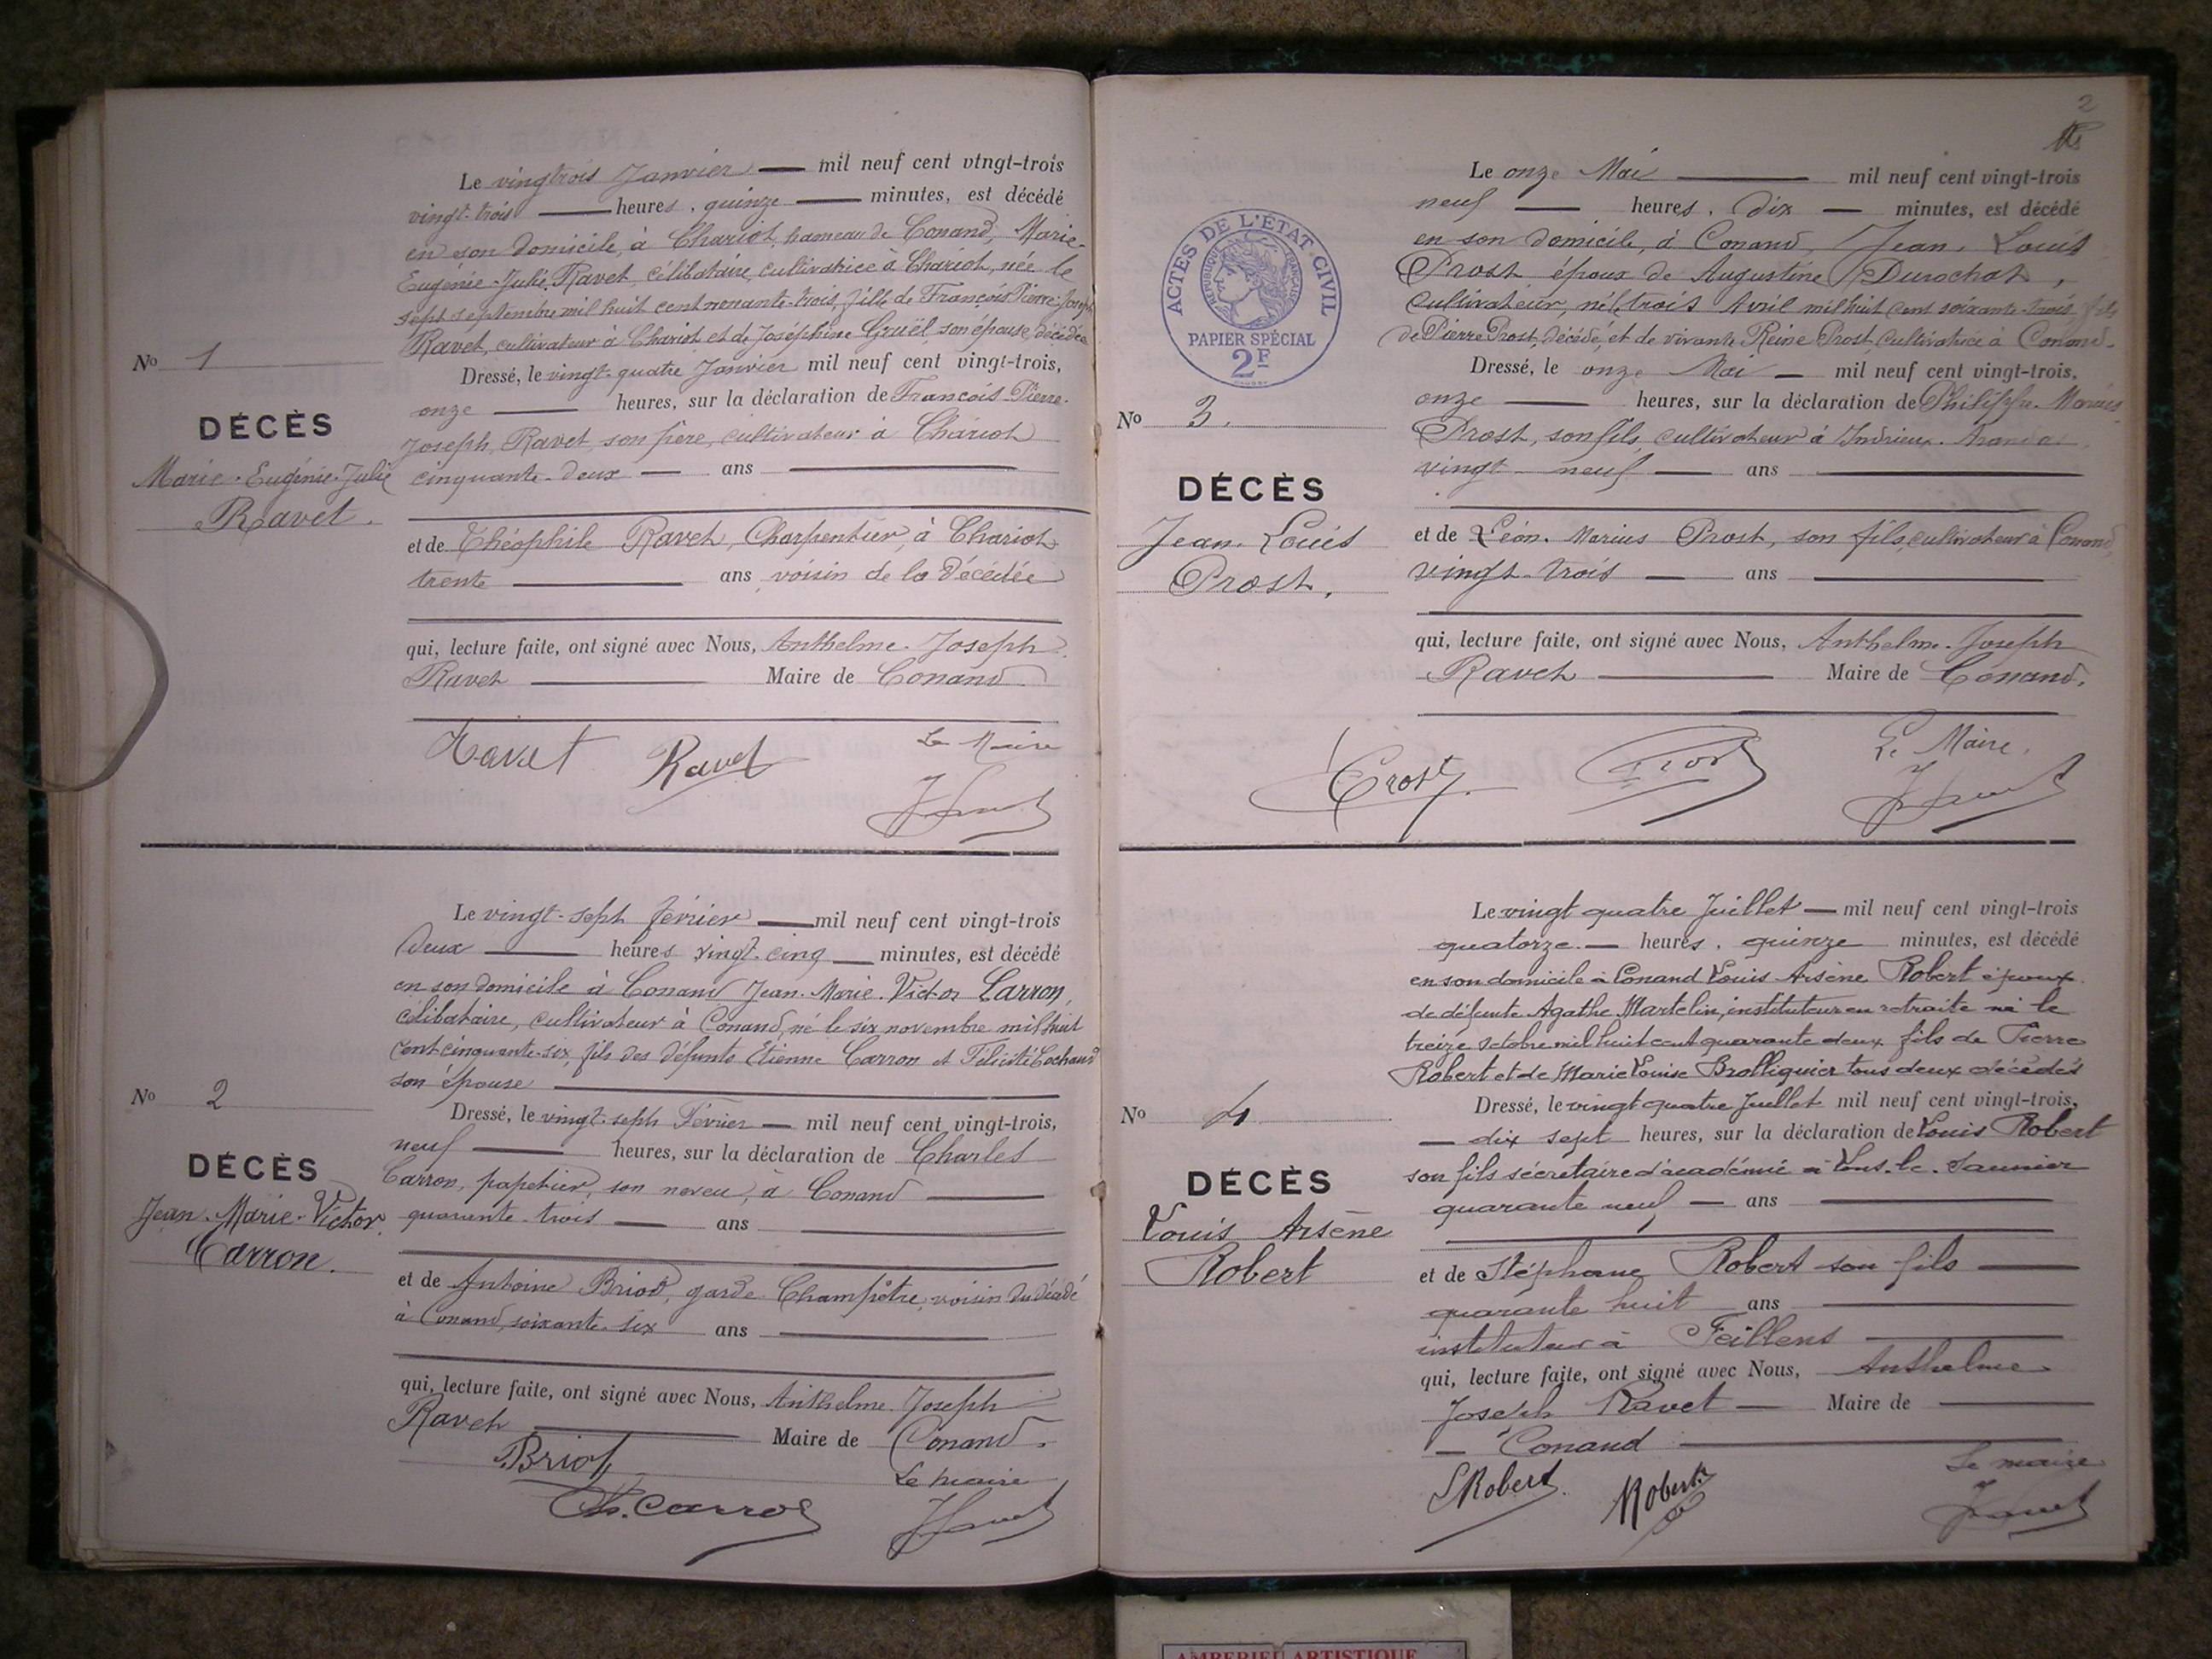 Le vingtrois Janvier — mil neuf cent vingt-trois
vingt-trois — heures, quinze — minutes, est décédé
en son domicile, à Chariot, hameau de Conand, Marie-
Eugénie-Julie Ravet, célibataire, cultivatrice à Chariot, née le
sept septembre mil huit cent nonante-trois, fille de François Pierre-Joseph
Ravet, cultivateur à Chariot et de Joséphine Gruël, son épouse, décédée
No 1
Dressé, le vingt-quatre Janvier mil neuf cent vingt-trois,
onze — heures, sur la déclaration de François-Pierre-
Joseph, Ravet, son père, cultivateur à Chariot
cinquante-deux — ans —
DÉCÈS
Marie-Eugénie-Julie
Ravet.
et de Théophile Ravet, Charpentier, à Chariot
trente — ans, voisin de la Décédée
qui, lecture faite, ont signé avec Nous, Anthelme-Joseph
Ravet — Maire de Conand
Ravet Ravet Le Maire
Le vingt-sept février — mil neuf cent vingt-trois
Deux — heures vingt-cinq — minutes, est décédé
en son domicile à Conand Jean-Marie-Victor Carron,
célibataire, cultivateur à Conand, né le six novembre mil huit
cent cinquante-six, fils des défunts Etienne Carron et Félicité Cochand
son épouse —
No 2
Dressé, le vingt-sept Février — mil neuf cent vingt-trois,
neuf — heures, sur la déclaration de Charles
Carron, papetier, son neveu, à Conand —
quarante-trois — ans —
DÉCÈS
Jean-Marie-Victor
Carron.
et de Antoine Briod, garde-Champêtre, voisin du décédé
à Conand, soixante-six ans —
qui, lecture faite, ont signé avec Nous, Anthelme-Joseph
Ravet — Maire de Conand.
Briot Le maire
Ch. Carron
2
Le onze Mai — mil neuf cent vingt-trois
neuf — heures, Dix — minutes, est décédé
en son domicile, à Conand, Jean-Louis
Prost époux de Augustine Durochat,
cultivateur, né le trois Avril mil huit cent soixante-trois, fils
de Pierre Prost, décédé, et de vivante Reine Prost, Cultivatrice à Conand.
ACTES DE L'ÉTAT CIVIL
RÉPUBLIQUE FRANÇAISE
PAPIER SPÉCIAL
2F
No 3.
Dressé, le onze Mai — mil neuf cent vingt-trois,
onze — heures, sur la déclaration de Philippe-Marius
Prost, son fils, cultivateur à Indrieux-Arandas
vingt-neuf — ans —
DÉCÈS
Jean-Louis
Prost,
et de Léon-Marius Prost, son fils, cultivateur à Conand
vingt-trois — ans —
qui, lecture faite, ont signé avec Nous, Anthelme-Joseph
Ravet — Maire de Conand.
Prost Prost Le Maire,
Le vingt quatre Juillet — mil neuf cent vingt-trois
quatorze — heures, quinze minutes, est décédé
en son domicile à Conand Louis Arsène Robert époux
de défunte Agathe Martelin, instituteur en retraite né le
treize octobre mil huit cent quarante deux fils de Pierre
Robert et de Marie Louise Brolliquier tous deux décédés
No 4
Dressé, le vingt quatre Juillet mil neuf cent vingt-trois,
— dix sept heures, sur la déclaration de Louis Robert
son fils sécretaire d'académie à Lons-le-Saunier
quarante neuf — ans —
DÉCÈS
Louis Arsène
Robert
et de Stéphane Robert son fils —
quarante huit ans —
instituteur à Feillens —
qui, lecture faite, ont signé avec Nous, Anthelme
Joseph Ravet — Maire de —
— Conand —
Le maire
LRobert Robert
AMBERIEU ARTISTIQUE